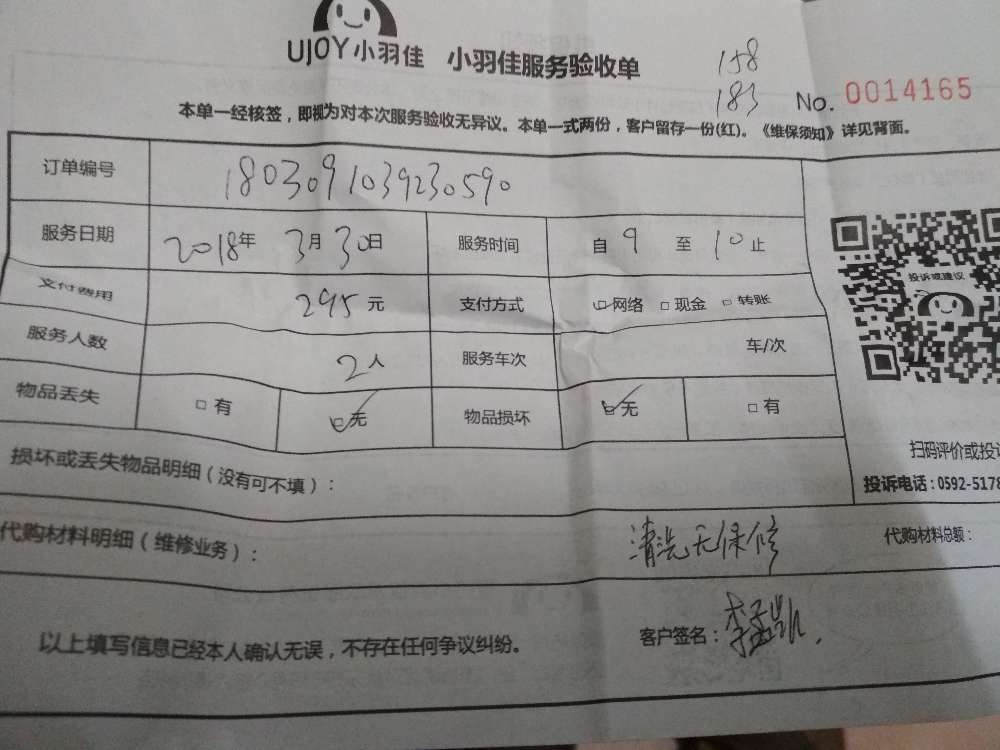 UJOY小羽佳 小羽佳服务验收单
158
183
No. 0014165
本单一经核签，即视为对本次服务验收无异议。本单一式两份，客户留存一份(红)。《维保须知》详见背面。
订单编号 1803091039230590
服务日期 2018年 3月30日 服务时间 自 9 至 10 止
支付费用 295元 支付方式 □网络 □现金 □转账
服务人数 2人 服务车次 车/次
物品丢失 □有 ☑无 物品损坏 ☑无 □有
投诉或建议
扫码评价或投诉
投诉电话：0592-5178
损坏或丢失物品明细（没有可不填）：
代购材料明细（维修业务）： 清洗无保修 代购材料总额：
以上填写信息已经本人确认无误，不存在任何争议纠纷。 客户签名：李